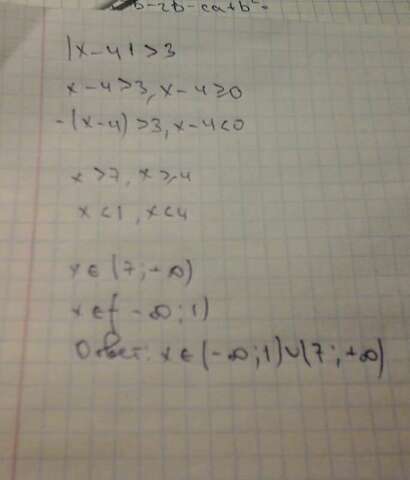 b-2b-ca+b²=
|x-4|>3
x-4>3, x-4≥0
-(x-4)>3, x-4<0
x>7, x≥4
x<1, x<4
x∈(7;+∞)
x∈(-∞;1)
Ответ: x∈(-∞;1)∪(7;+∞)